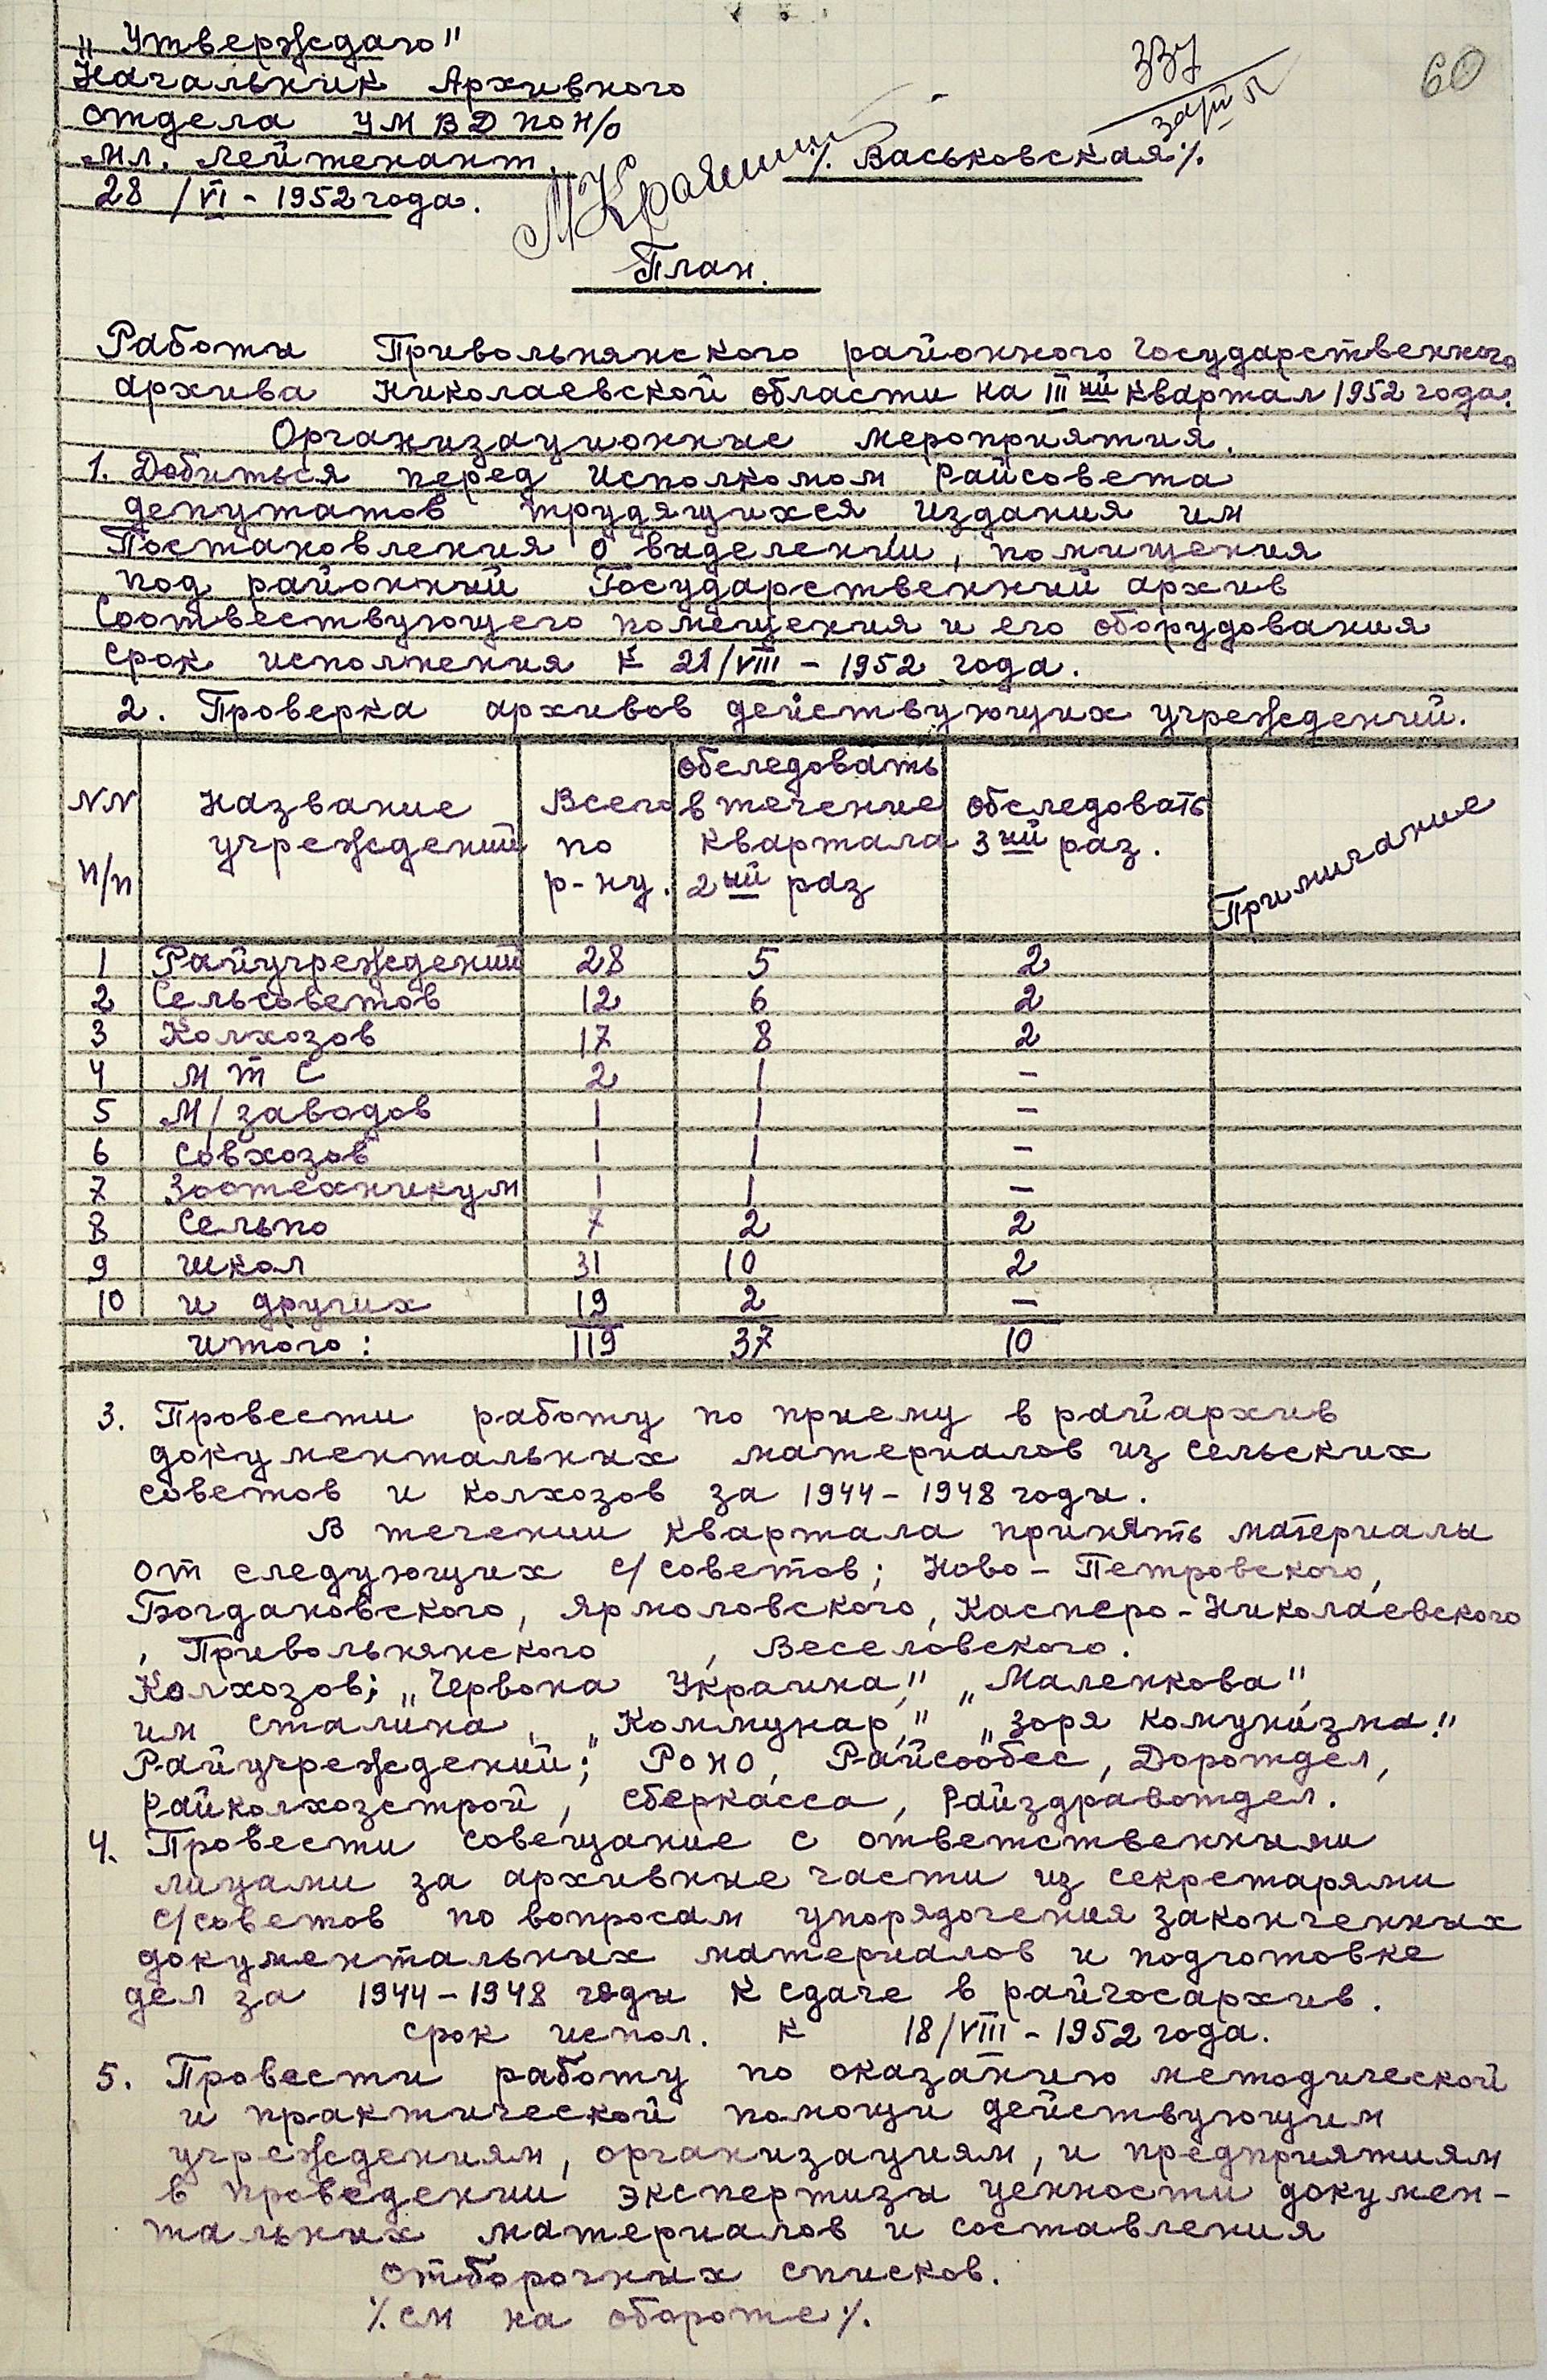 „Утверждаю"
Начальник Архивного
отдела УМВД по Н/о
мл. лейтенант
/. Васьковская /.
28 /VI - 1952 года.
337
60
План.
Работы Привольнянского районного Государственного
архива Николаевской области на III ий квартал 1952 года.
Организационные мероприятия.
1. Добиться перед исполкомом Райсовета
депутатов трудящихся издания им
Постановления о выделении, помищения
под районный Государственный архив
Соотвествующего помещения и его оборудования
срок исполнения к 21/VIII - 1952 года.
2. Проверка архивов действующих учреждений.
NN п/п Название учреждений Всего по р-ну. обследовать в течение квартала 2 ый раз обследовать 3 ий раз. Примичание
1 Райучреждений 28 5 2
2 Сельсоветов 12 6 2
3 Колхозов 17 8 2
4 М Т С 2 1 -
5 М/заводов 1 1 -
6 Совхозов 1 1 -
7 Зоотехникум 1 1 -
8 Сельпо 7 2 2
9 школ 31 10 2
10 и других 19 2 -
итого: 119 37 10
3. Провести работу по приему в райархив
документальных материалов из сельских
советов и колхозов за 1944 - 1948 годы.
В течении квартала принять материалы
от следующих с/советов; Ново - Петровского,
Богдановского, Ярмоловского, Касперо - Николаевского
, Привольнянского , Веселовского.
Колхозов; „Червона Украина," „Маленкова",
им Сталина, „Коммунар," „Зоря комунизма."
Райучреждений; РОНО, Райсообес, Дорождел,
Райколхозстрой, сберкасса, Райздравотдел.
4. Провести совещание с ответственными
лицами за архивные части из секретарями
с/советов по вопросам упорядочения законченных
документальных материалов и подготовке
дел за 1944 - 1948 годы к сдаче в райгосархив.
срок испол. к 18/VIII - 1952 года.
5. Провести работу по оказанию методической
и практической помощи действующим
учреждениям, организациям, и предприятиям
в проведении экспертизы ценности докумен-
тальных материалов и составления
отборочных списков.
/. см на обороте /.